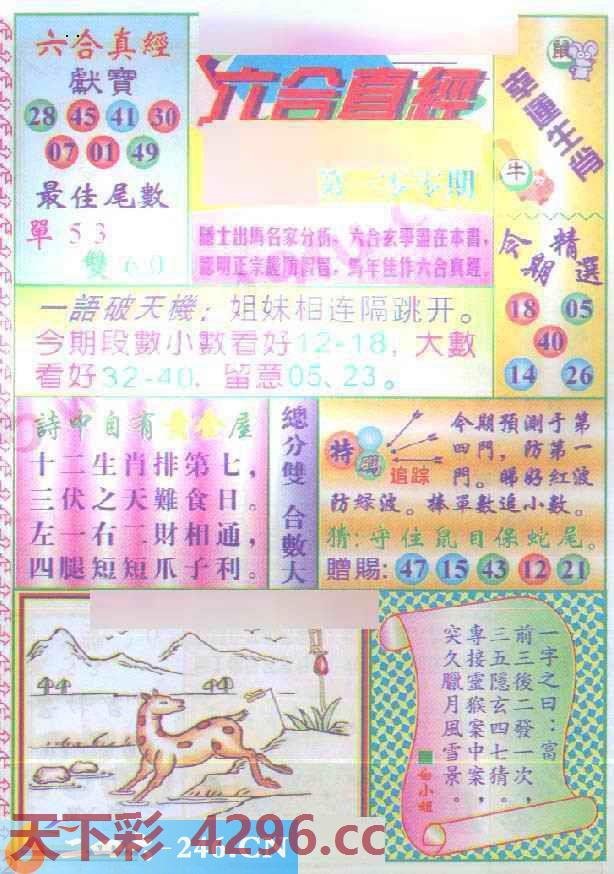 六合真經
獻寶
28 45 41 30
07 01 49
最佳尾數
單 53
雙 60
六合真經
第二零零期
隱士出馬名家分析，六合玄學盡在本書，
聰明正宗嚴防假冒，馬年佳作六合真經。
鼠
幸運生肖
牛
今期
精選
18 05
40
14 26
一語破天機：姐妹相连隔跳开。
今期段數小數看好12-18，大數
看好32-40，留意05、23。
詩中自有黃金屋
十二生肖排第七，
三伏之天難食日。
左一右二財相通，
四腿短短爪子利。
總分雙 合數大
特碼
追踪
今期預測于第
四門，防第一
門。睇好紅波
防緑波。棒單數追小數。
猜:守住鼠目保蛇尾。
贈賜: 47 15 43 12 21
一字之曰：富
前三後二發一次，
三五隱玄四七猜。
專接靈猴案中案，
突久臘月風雪景。
白小姐
天下彩 4296.cc
246.CN